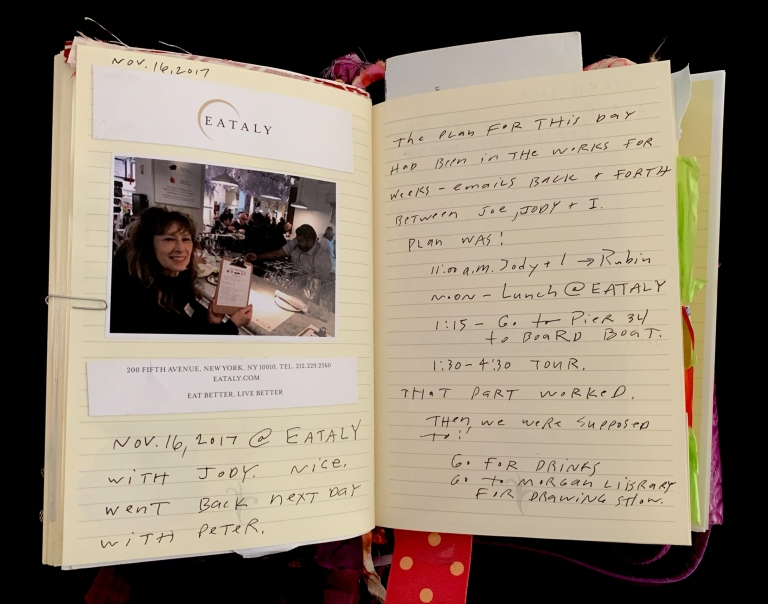 NOV. 16, 2017
EATALY
200 FIFTH AVENUE, NEW YORK, NY 10010, TEL. 212.229.2560
EATALY.COM
EAT BETTER, LIVE BETTER
NOV. 16, 2017 @ EATALY
WITH JODY. NICE.
WENT BACK NEXT DAY
WITH PETER.
THE PLAN FOR THIS DAY
HAD BEEN IN THE WORKS FOR
WEEKS - EMAILS BACK + FORTH
BETWEEN JOE, JODY + I.
PLAN WAS!
11:00 a.m. Jody + I → Rubin
NOON - Lunch @ EATALY
1:15 - Go to PIER 34
to BOARD BOAT.
1:30-4:30 TOUR.
THAT PART WORKED.
THEN WE WERE SUPPOSED
to!
GO FOR DRINKS
GO to MORGAN LIBRARY
FOR DRAWING SHOW.